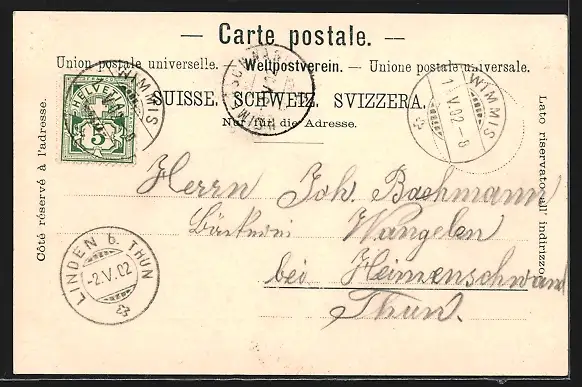 — Carte postale. —
Union postale universelle. — Weltpostverein. — Unione postale universale.
SUISSE. SCHWEIZ. SVIZZERA.
Nur für die Adresse.
Côté réservé à l'adresse.
Lato riservato all' indirizzo.
HELVETIA
5
WIMMIS
WIMMIS
1.V.02-8
LINDEN b. THUN
-2.V.02
Herrn Joh. Bachmann
Wangelen
bei Heimenschwand
Thun.